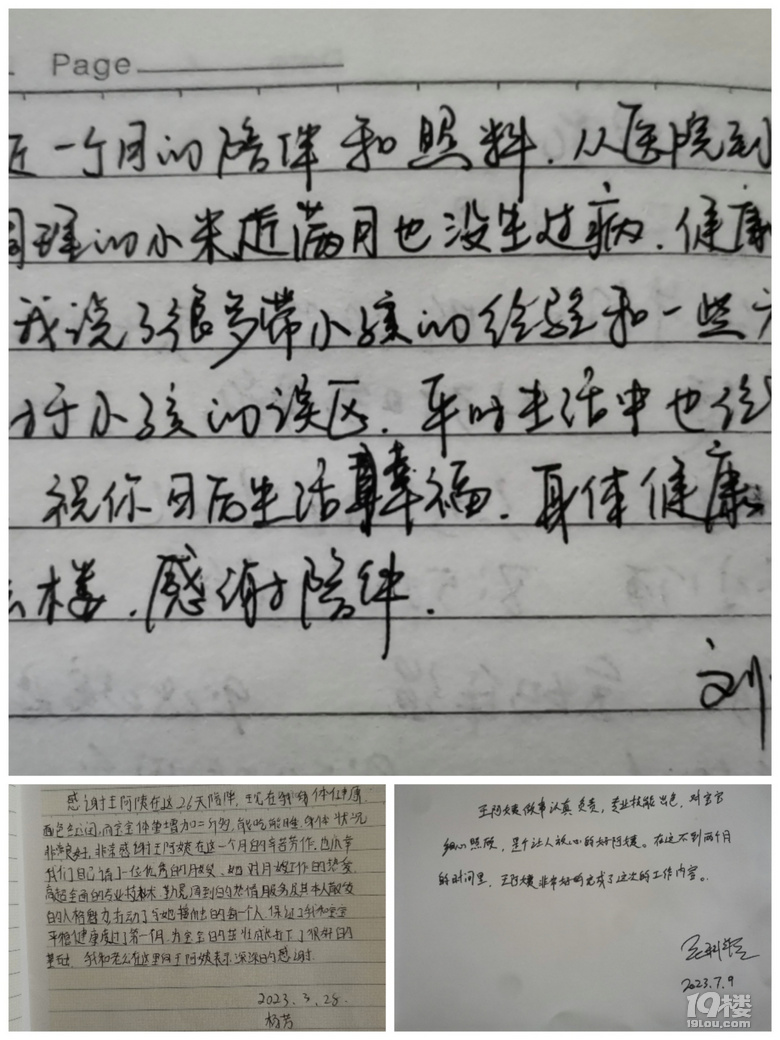 Page
近一个月的陪伴和照料.从医院到
的小米近满月也没生过病.健康
我说了很多带小孩的经验和一些
于小孩的误区.平时生活中也给
祝你日后生活幸福.身体健康
楼.感谢陪伴.
刘
感谢王阿姨在这26天陪伴,现在我身体健康,
面色红润,而宝宝体重增加二斤多,能吃能睡,身体状况
非常良好,非常感谢王阿姨在这一个月的辛苦劳作,也庆幸
我们自己请了一位优秀的月嫂,她对月嫂工作的热爱,
高超全面的专业技术,勤恳周到的热情服务及其本人散发
的人格魅力打动了与她接触的每一个人,保证了我和宝宝
平稳健康度过了第一个月,为宝宝的茁壮成长打下了很好的
基础,我和老公在这里向王阿姨表示深深的感谢.
2023.3.28.
杨芳
王阿姨做事认真负责,专业技能出色,对宝宝
细心照顾,是个让人放心的好阿姨。在这不到两个月
的时间里,王阿姨非常好的完成了这次的工作内容。
2023.7.9
19楼
19lou.com